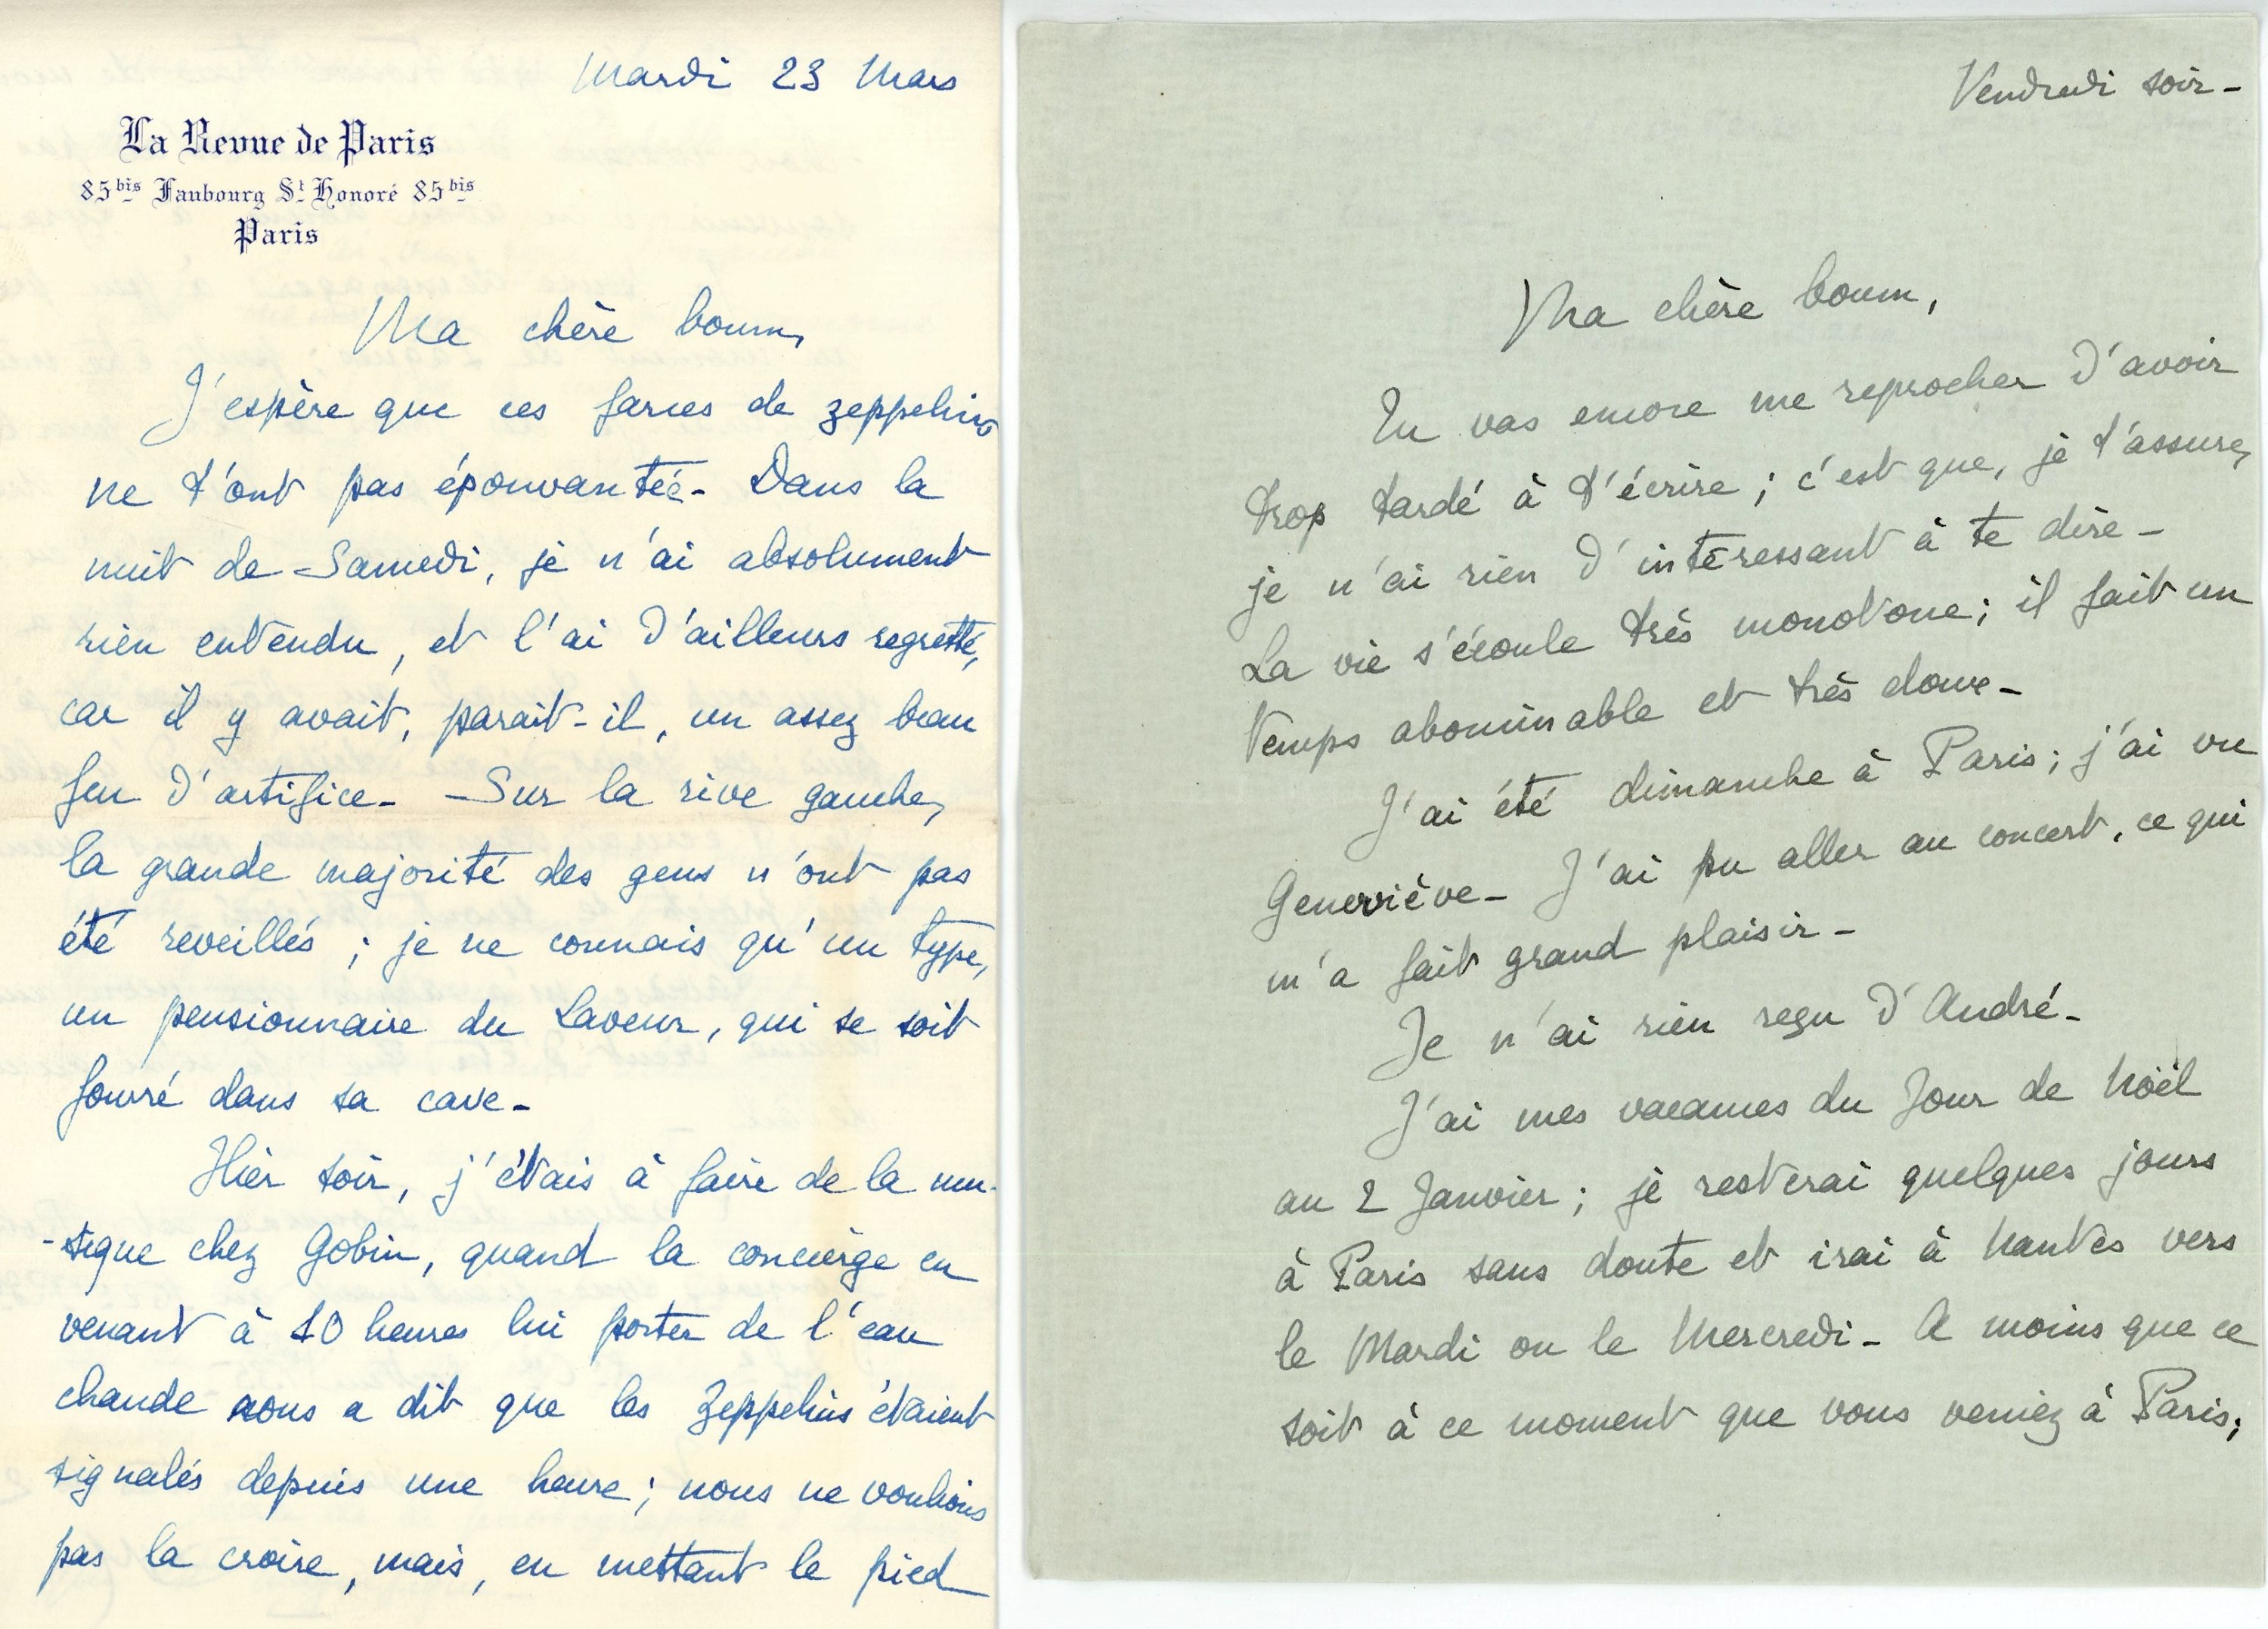 Mardi 23 Mars
La Revue de Paris
85bis Faubourg St Honoré 85bis
Paris
Ma chère boum,
J'espère que ces farces de zeppelins
ne t'ont pas épouvantée - Dans la
nuit de Samedi, je n'ai absolument
rien entendu, et l'ai d'ailleurs regretté,
car il y avait, parait-il, un assez beau
feu d'artifice - Sur la rive gauche,
la grande majorité des gens n'ont pas
été reveillés ; je ne connais qu'un type,
un pensionnaire du Laveur, qui se soit
fourré dans sa cave -
Hier soir, j'étais à faire de la mu-
-sique chez Gobin, quand la concierge en
venant à 10 heures lui porter de l'eau
chaude nous a dit que les Zeppelins étaient
signalés depuis une heure ; nous ne voulions
pas la croire, mais, en mettant le pied
Vendredi soir -
Ma chère boum,
Tu vas encore me reprocher d'avoir
trop tardé à t'écrire ; c'est que, je t'assure,
je n'ai rien d'intéressant à te dire -
La vie s'écoule très monotone ; il fait un
temps abominable et très doux -
J'ai été dimanche à Paris ; j'ai vu
Geneviève - J'ai pu aller au concert, ce qui
m'a fait grand plaisir -
Je n'ai rien reçu d'André -
J'ai mes vacances du Jour de Noël
au 2 Janvier ; je resterai quelques jours
à Paris sans doute et irai à Nantes vers
le Mardi ou le Mercredi - A moins que ce
soit à ce moment que vous veniez à Paris ;